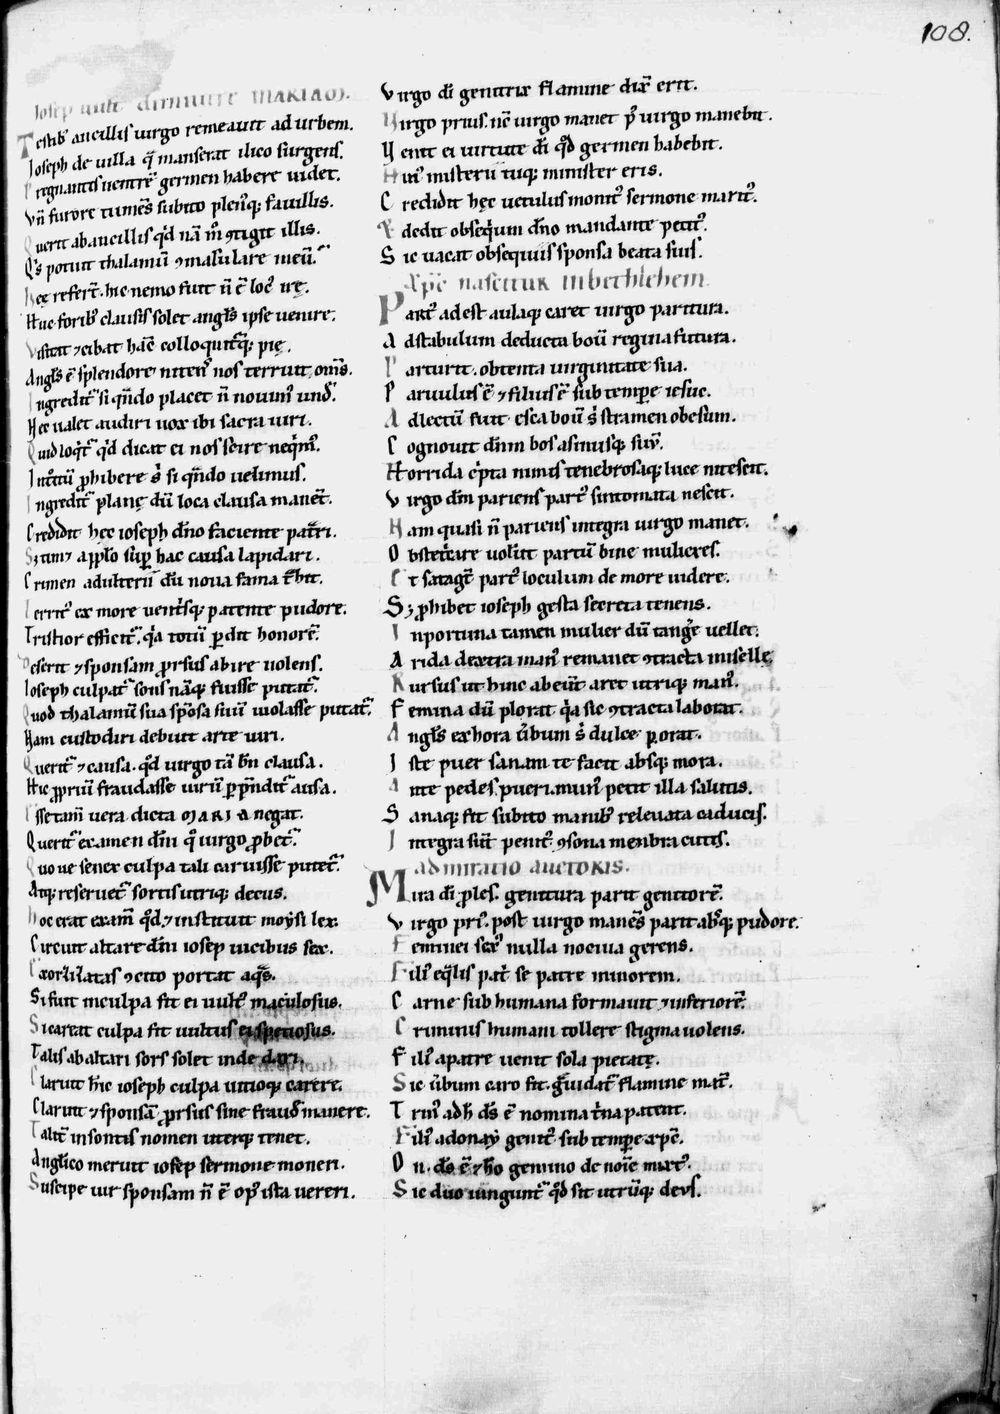 108.
Iosep uult dimittere MARIAM.
Testibꝰ ancillis uirgo remeauit ad urbem.
Ioseph de uilla q̄ manserat ilico surgens.
Pregnantis uentrē germen habere uidet.
Vn̄ furore tumēs subito plenꝰq; fauillis.
Querit ab ancillis qd̄ nā m̄ ꝯtigit illis.
Qͥs potuit thalamū ꝯmaculare meū.
Hęc refert̄. hic nemo fuit n̄ ē locꝰ iste.
Huc foribꝰ clausis solet angl̄s ipse uenire.
Visitat ⁊ cibat hāc colloquitꝰq; pię.
Angl̄s ē splendore nitenˢ nos terruit om̄s.
Ingreditᷣ si qn̄do placet n̄ nouimꝰ undͤ.
Hec ualet audiri uox ibi sacra uiri.
Quid loqͥtᷣ qd̄ dicat ei nos scire neqͥmꝰ.
Introitū ꝓhibere sꝫ si qn̄do uelimus.
Ingreditᷣ planę dū loca clausa manent̄.
Credidit hęc ioseph dn̄o faciente pat̄ri.
Sꝫ timꝫ ap̄pl̄o sup̄ hac causa lapidari.
Crimen adult̄erii dū noua fama t̄hit.
Territꝰ ex more uent̄isq; patente pudore.
Tristior efficit̄. qͥa totū ꝑdit honorē.
Deserit ⁊ sponsam ꝓrsus abire uolens.
Ioseph culpat̄ sons nāq; fuisse putat̄.
Quod thalamū sua spōsa suū uiolasse putat̄.
Nam custodiri debuit arte uiri.
Querit̄ ⁊ causa. qd̄ uirgo tā bn̄ clausa.
Hic ꝓpriū fraudasse uirū ꝑpendit̄ ausa.
Issetam̄ uera dicta MARIA negat.
Querit̄ examen dn̄i qͦ uirgo ꝓbet̄.
Quo ue senex culpa tali caruisse putet̄.
Atq; reseruet̄ sortis utriq; decus.
Hoc erat exam̄ qd̄ ⁊ instituit moysi lex.
Circuit altare dn̄i iosep uicibus sex.
portat aqͣs.
Si fuit inculpa fit ei uultꝰ maculosus.
Si careat culpa fit uultus ei speciosus.
Talis ab altari sors solet inde dari.
Claruit hīc ioseph culpa uitioq; carere.
Claruit ⁊ sponsā ꝓrsus sine fraudͤ manere.
Talit̄ insontis nomen uterq; tenet.
Angl̄ico meruit iosep sermone moneri.
Suscipe uir sponsam n̄ ē opꝰ ista uereri.
Virgo dī genitrix flamine dīx erit.
Virgo prius. nc̄ uirgo manet p̄ uirgo manebit.
Venit ei uirtute dī qd̄ germen habebit.
Huiꝰ misterii tuq; minister eris.
Credidit hęc uetulus monitꝰ sermone maritꝰ.
Reddidit obseqͥum dn̄o mandante petitꝰ.
Sic uacat obsequiis sponsa beata suis.
Xp̄c nascitur in bethlehem.
Partꝰ adest aulaq; caret uirgo paritura.
Ad stabulum deducta boū regina futura.
Parturit. obtenta uirginitate sua.
Paruulus ē ⁊ filius ē sub tempore iesus.
Allectū fuit esca boū sꝫ stramen obesum.
Cognouit dn̄m bos asinusq; suū.
Horrida cͥpta nimis tenebrosaq; luce nitescit.
Virgo dn̄m pariens partꝰ sintomata nescit.
Nam quasi n̄ pariens integra uirgo manet.
Obstetͥcare uolūt partū bine mulieres.
Et satagt̄ partꝰ loculum de more uidere.
Sꝫ ꝓhibet ioseph gesta secreta tenens.
Inportuna tamen mulier dū tangͤe uellet.
Arida dextra manꝰ remanet ꝯtracta misellę.
Rursus ut hinc abeūt aret utriq; manꝰ.
Femina dū plorat qͥa sic ꝯtracta laborat.
Angl̄s ex hora ūbum sꝫ dulce ꝑorat.
Iste puer sanam te facit absq; mora.
Ante pedes pueri munꝰ petit illa salutis.
Sanaq; fit subito manibꝰ releuata caducis.
Integra sūt penitꝰ ꝯsona menbra cutis.
admiratio auctoris.
Mira dī ꝓles. genitura parit genitorē.
Virgo priꝰ. post uirgo manēs parit absq; pudore.
Feminei sexꝰ nulla nociua gerens.
Filiꝰ eql̄is patͥ se patre minorem.
Carne sub humana formauit ⁊ inferiorē.
Criminis humani tollere stigma uolens.
Filiꝰ a patre uenit sola pietatę.
Sic ūbum caro fit. gͣuidat̄ flamine mat̄.
Trinꝰ adh̄ ds̄ ē nomina t̄na patent.
Filiꝰ adonay genitꝰ sub tempore xp̄c.
Vn̄. ds̄ ē ⁊ hō gemino de noīe mixtꝰ.
Sic duo iungunt̄ qd̄ sit utrūq; deus.